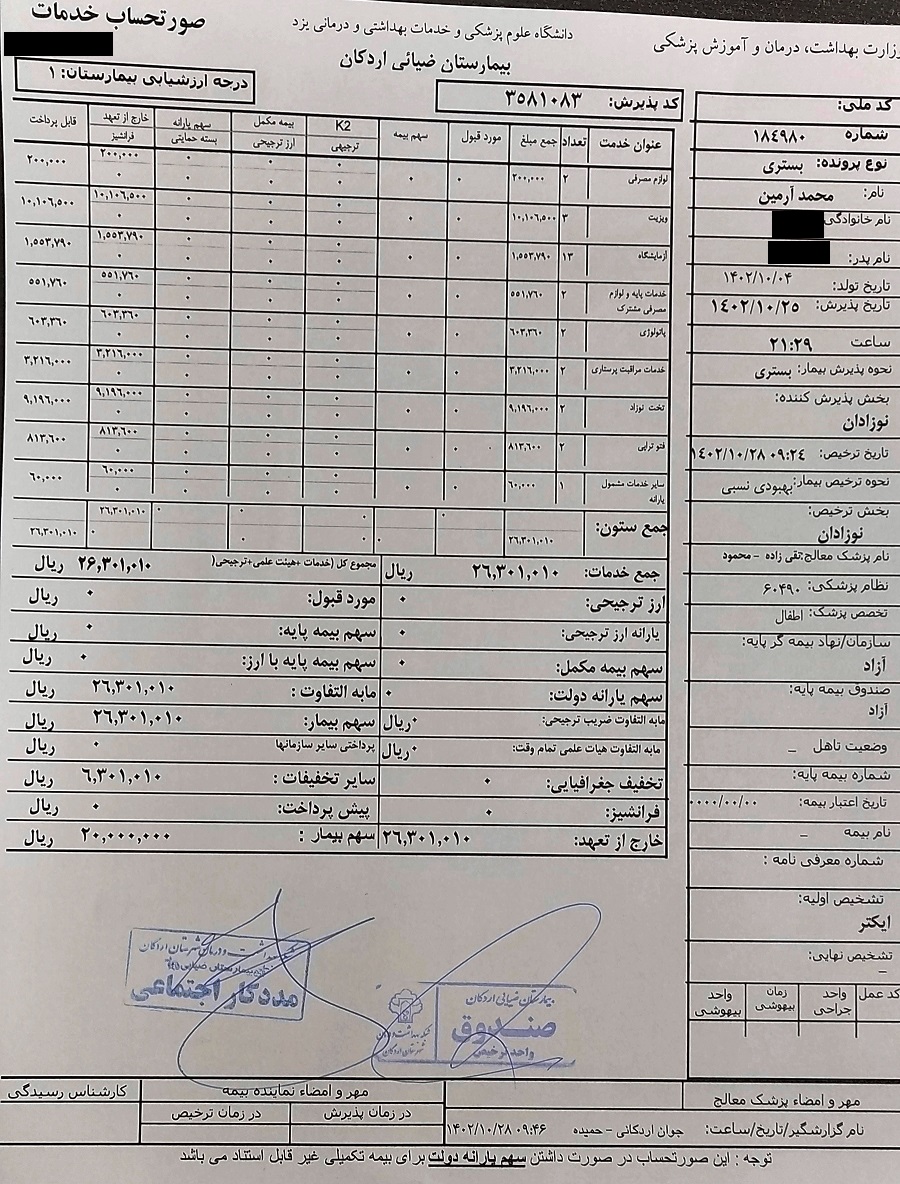 صورتحساب خدمات
دانشگاه علوم پزشکی و خدمات بهداشتی و درمانی یزد
وزارت بهداشت، درمان و آموزش پزشکی
بیمارستان ضیائی اردکان
درجه ارزشیابی بیمارستان: ۱
کد پذیرش: ۳۵۸۱۰۸۳
کد ملی:
شماره ۱۸۴۹۸۰
نوع پرونده: بستری
نام: محمد آرمین
نام خانوادگی
نام پدر:
تاریخ تولد: ۱۴۰۲/۱۰/۰۴
تاریخ پذیرش: ۱۴۰۲/۱۰/۲۵
ساعت ۲۱:۲۹
نحوه پذیرش بیمار: بستری
بخش پذیرش کننده:
نوزادان
تاریخ ترخیص: ۰۹:۲۴ ۱۴۰۲/۱۰/۲۸
نحوه ترخیص بیمار: بهبودی نسبی
بخش ترخیص:
نوزادان
نام پزشک معالج: تقی زاده - محمود
نظام پزشکی: ۶۰۴۹۰
تخصص پزشک: اطفال
سازمان/نهاد بیمه گر پایه:
آزاد
صندوق بیمه پایه:
آزاد
وضعیت تاهل _
شماره بیمه پایه:
تاریخ اعتبار بیمه: ۰۰۰۰/۰۰/۰۰
نام بیمه _
شماره معرفی نامه :
تشخیص اولیه:
ایکتر
تشخیص نهایی:
_
کد عمل واحد جراحی زمان بیهوشی واحد بیهوشی
عنوان خدمت تعداد جمع مبلغ مورد قبول سهم بیمه K2 ترجیهی بیمه مکمل ارز ترجیحی سهم یارانه بسته حمایتی خارج از تعهد فرانشیز قابل پرداخت
لوازم مصرفی ۲ ۲۰۰,۰۰۰ ۰ ۰ ۰ ۰ ۰ ۰ ۰ ۰ ۲۰۰,۰۰۰ ۰ ۲۰۰,۰۰۰
ویزیت ۳ ۱۰,۱۰۶,۵۰۰ ۰ ۰ ۰ ۰ ۰ ۰ ۰ ۰ ۱۰,۱۰۶,۵۰۰ ۰ ۱۰,۱۰۶,۵۰۰
آزمایشگاه ۱۳ ۱,۵۵۳,۷۹۰ ۰ ۰ ۰ ۰ ۰ ۰ ۰ ۰ ۱,۵۵۳,۷۹۰ ۰ ۱,۵۵۳,۷۹۰
خدمات پایه و لوازم مصرفی مشترک ۲ ۵۵۱,۷۶۰ ۰ ۰ ۰ ۰ ۰ ۰ ۰ ۰ ۵۵۱,۷۶۰ ۰ ۵۵۱,۷۶۰
پاتولوژی ۲ ۶۰۳,۳۶۰ ۰ ۰ ۰ ۰ ۰ ۰ ۰ ۰ ۶۰۳,۳۶۰ ۰ ۶۰۳,۳۶۰
خدمات مراقبت پرستاری ۲ ۳,۲۱۶,۰۰۰ ۰ ۰ ۰ ۰ ۰ ۰ ۰ ۰ ۳,۲۱۶,۰۰۰ ۰ ۳,۲۱۶,۰۰۰
تخت نوزاد ۲ ۹,۱۹۶,۰۰۰ ۰ ۰ ۰ ۰ ۰ ۰ ۰ ۰ ۹,۱۹۶,۰۰۰ ۰ ۹,۱۹۶,۰۰۰
فتو تراپی ۲ ۸۱۳,۶۰۰ ۰ ۰ ۰ ۰ ۰ ۰ ۰ ۰ ۸۱۳,۶۰۰ ۰ ۸۱۳,۶۰۰
سایر خدمات مشمول یارانه ۱ ۶۰,۰۰۰ ۰ ۰ ۰ ۰ ۰ ۰ ۰ ۰ ۶۰,۰۰۰ ۰ ۶۰,۰۰۰
جمع ستون: ۲۶,۳۰۱,۰۱۰ ۰ ۰ ۰ ۰ ۰ ۰ ۰ ۲۶,۳۰۱,۰۱۰ ۰ ۲۶,۳۰۱,۰۱۰
جمع خدمات: ۲۶,۳۰۱,۰۱۰ ریال مجموع کل (خدمات +هیئت علمی+ترجیحی( ۲۶,۳۰۱,۰۱۰ ریال
ارز ترجیحی: ۰ مورد قبول: ۰ ریال
یارانه ارز ترجیحی: ۰ سهم بیمه پایه: ۰ ریال
سهم بیمه مکمل: ۰ سهم بیمه پایه با ارز: ۰ ریال
سهم یارانه دولت: ۰ مابه التفاوت : ۲۶,۳۰۱,۰۱۰ ریال
مابه التفاوت ضریب ترجیحی: ۰ ریال سهم بیمار: ۲۶,۳۰۱,۰۱۰ ریال
مابه التفاوت هیات علمی تمام وقت: ۰ ریال پرداختی سایر سازمانها ۰ ریال
تخفیف جغرافیایی: ۰ سایر تخفیفات : ۶,۳۰۱,۰۱۰ ریال
فرانشیز: ۰ پیش پرداخت: ۰ ریال
خارج از تعهد: ۲۶,۳۰۱,۰۱۰ سهم بیمار : ۲۰,۰۰۰,۰۰۰ ریال
بیمارستان ضیایی اردکان
صندوق
واحد ترخیص
شبکه بهداشت و درمان
شهرستان اردکان
بهداشت و درمان شهرستان اردکان
بیمارستان ضیایی
مددکار اجتماعی
مهر و امضاء پزشک معالج مهر و امضاء نماینده بیمه کارشناس رسیدگی
در زمان پذیرش در زمان ترخیص
نام گزارشگیر/تاریخ/ساعت: جوان اردکانی - حمیده ۰۹:۴۶ ۱۴۰۲/۱۰/۲۸
توجه : این صورتحساب در صورت داشتن سهم یارانه دولت برای بیمه تکمیلی غیر قابل استناد می باشد